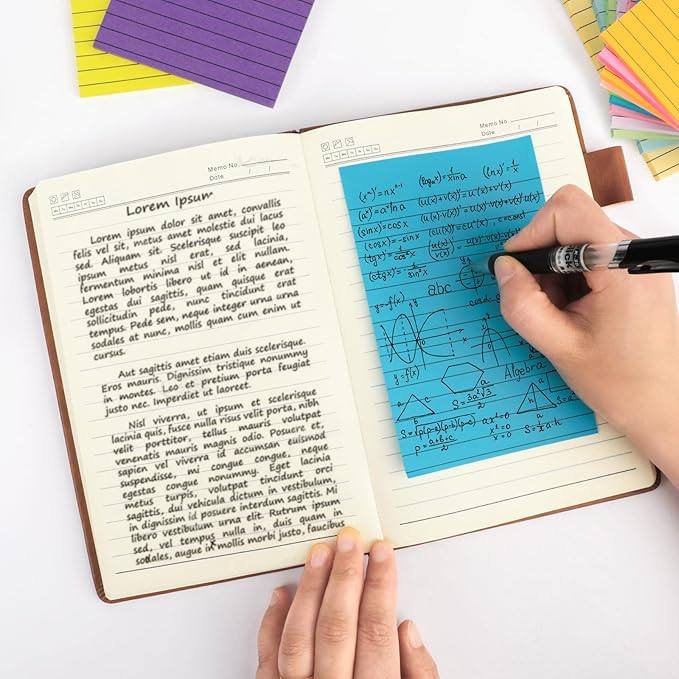 Memo No.
Date / /
Lorem Ipsum
Lorem ipsum dolor sit amet, convallis
felis vel sit, metus amet molestie dui lacus
sed. Aliquam sit. Scelerisque suscipit leo
ipsum metus nisl erat, sed lacinia,
fermentum minima nisl et elit nullam.
Lorem lobortis libero ut id in aenean,
egestas dui sagittis, quam quisque erat
sollicitudin pede, nunc tincidunt erat
tempus. Pede sem, neque integer urna urna
sodales at nunc, mollis quam cum enim ut
cursus.
Aut sagittis amet etiam duis scelerisque.
Eros mauris. Dignissim tristique nonummy
in montes. Leo et pretium porta feugiat
justo nec. Imperdiet ut laoreet.
Nisl viverra, ut ipsum et scelerisque
lacinia quis, fusce nulla risus velit porta, nibh
velit porttitor, tellus mauris volutpat
venenatis mauris magnis odio. Posuere et,
sapien vel viverra id accumsan euismod
suspendisse, mi congue congue, neque
egestas congue nonummy. Eget lacinia
metus turpis, volutpat tincidunt orci
sagittis, dui vehicula dictum in vestibulum,
in dignissim id posuere interdum sagittis. Mi
libero vestibulum urna elit. Rutrum ipsum
sed, vel tempus nulla in, duis quam in
sodales, augue in mollis morbi justo, faucibus
Memo No.
Date / /
(xⁿ)'=nxⁿ⁻¹
(aˣ)'=aˣlna (u(x)±v(x))'=u'(x)±v'(x)
(sinx)'=cosx
(cosx)'=-sinx
abc
y=f(x)
y=f(x)
Algebra
S=3a²√3/2
S=√p(p-a)(p-b)(p-c)
p=a+b+c/2
ax²=0
x²=0
x=0
S=½a·h